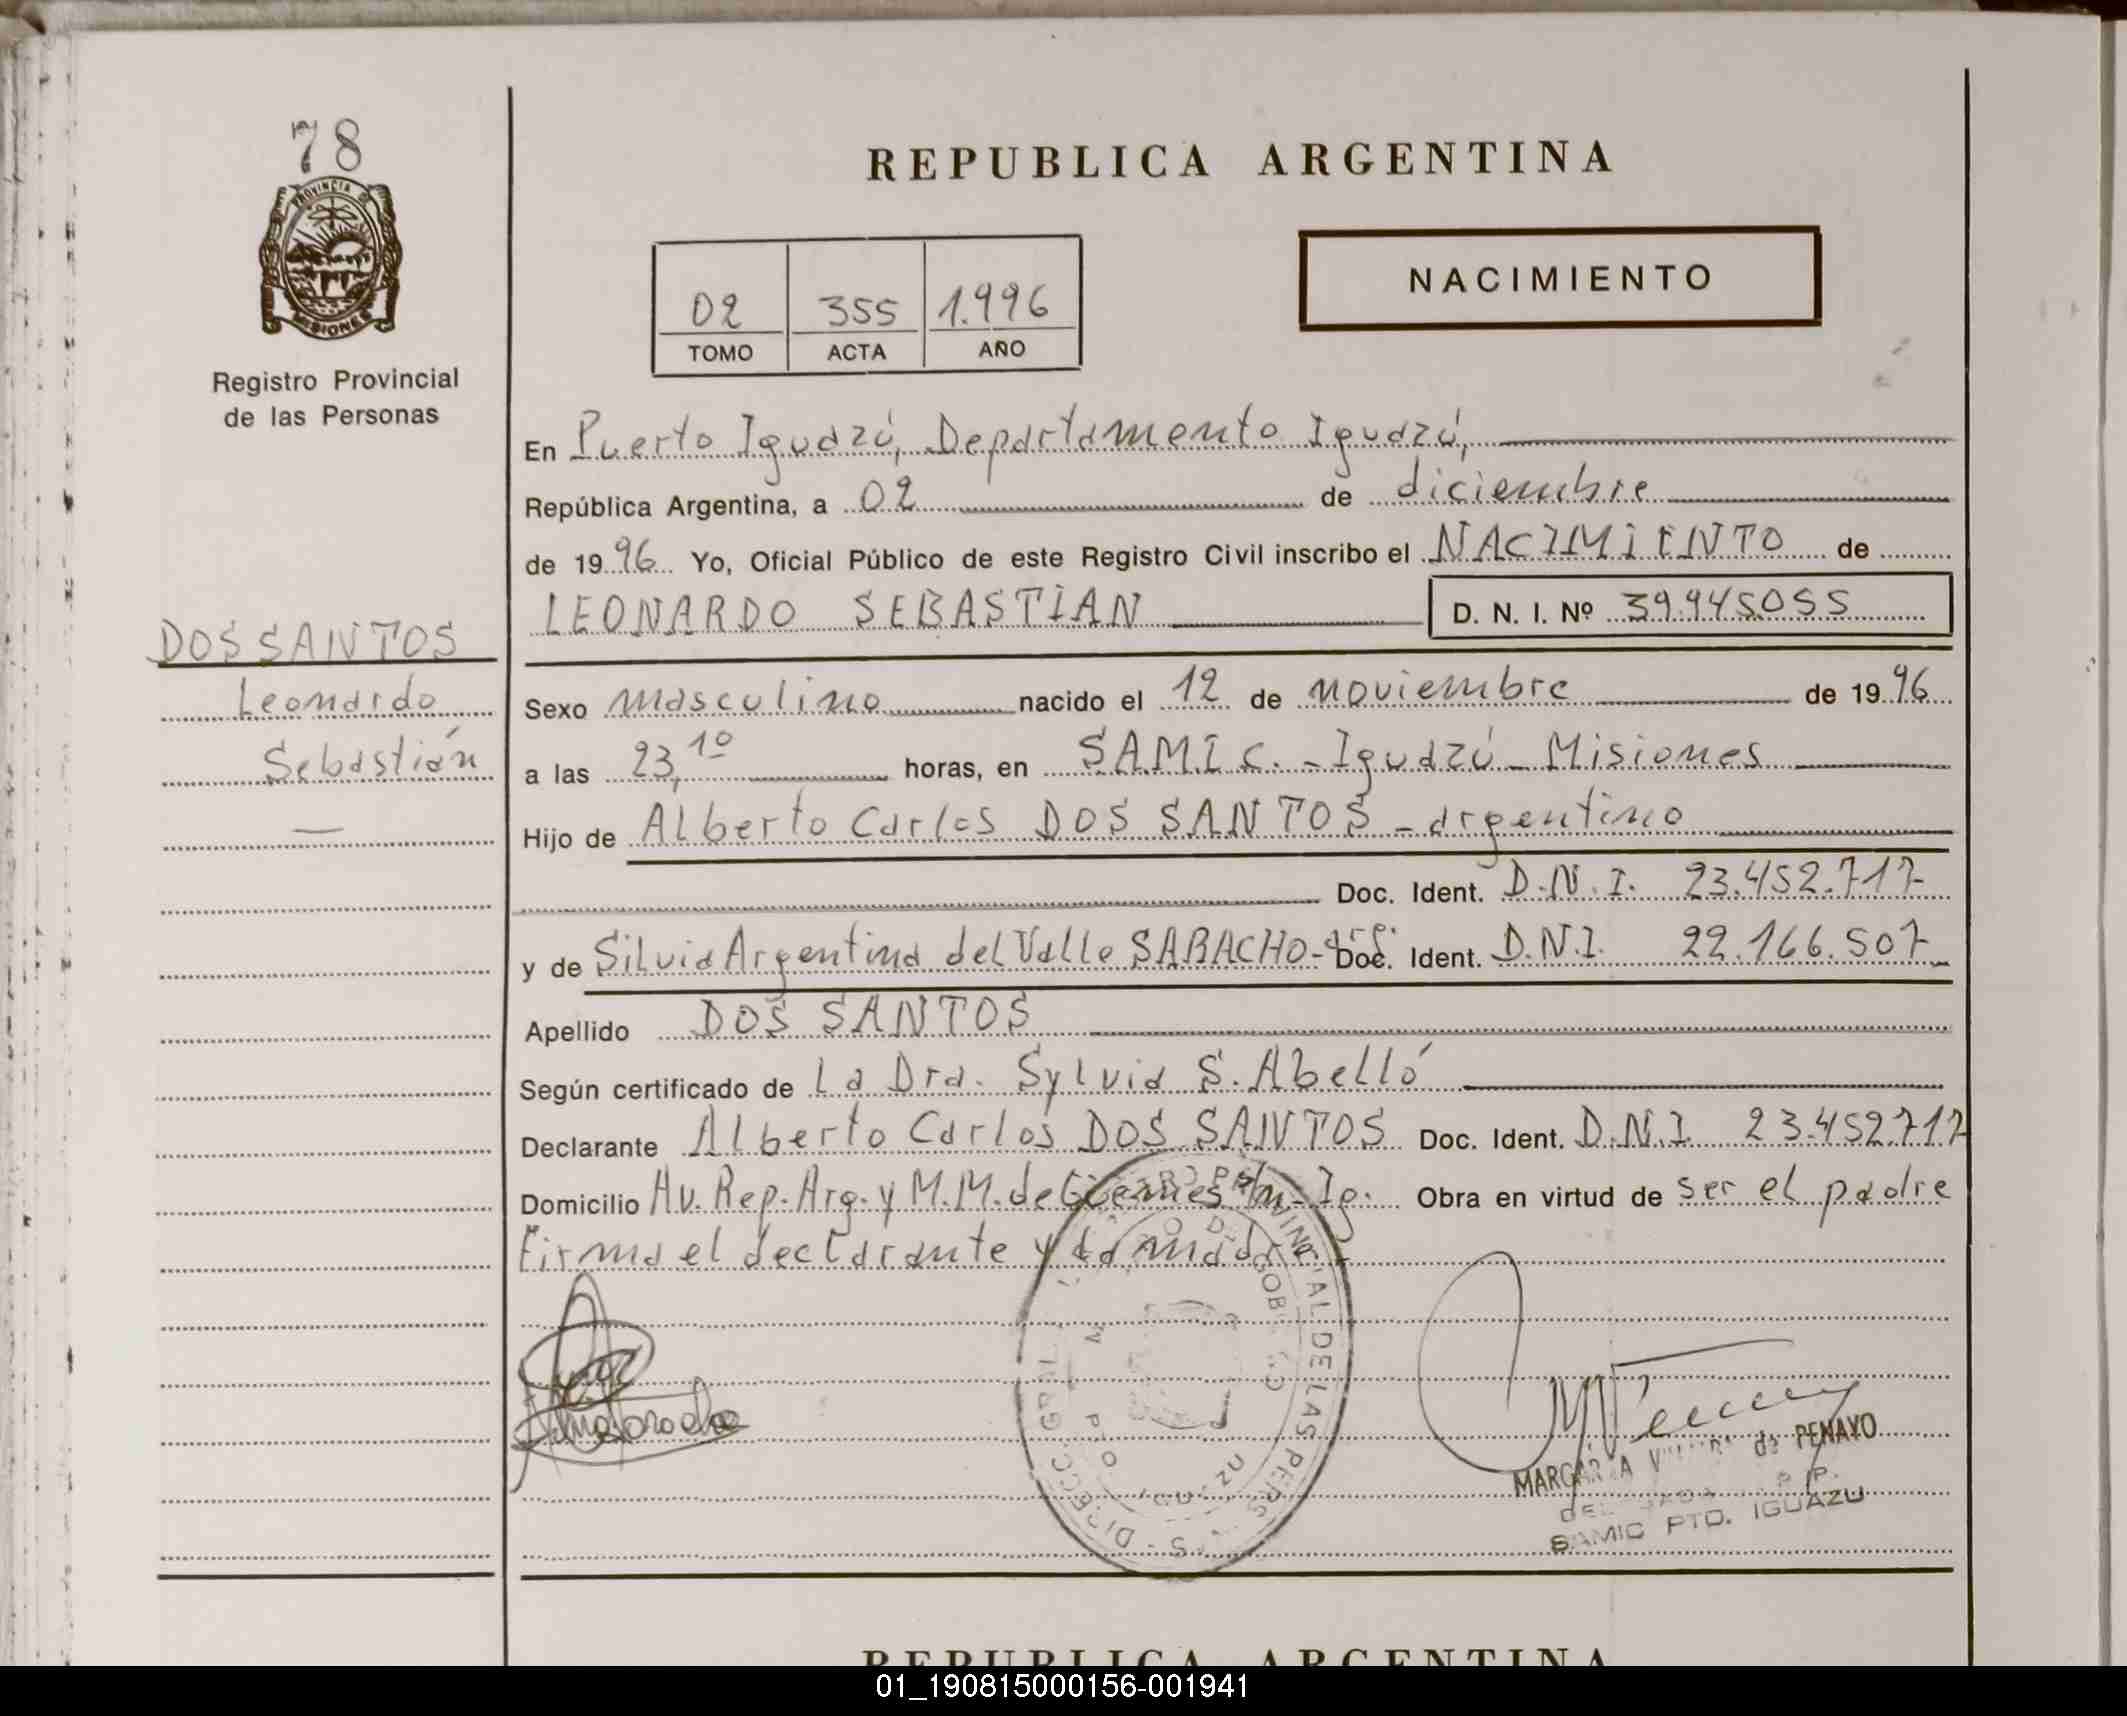 78
PROVINCIA DE
MISIONES
Registro Provincial
de las Personas
REPUBLICA ARGENTINA
NACIMIENTO
02 355 1.996
TOMO ACTA AÑO
En Puerto Iguazú, Departamento Iguazú,
República Argentina, a 02 de diciembre
de 1996 Yo, Oficial Público de este Registro Civil inscribo el NACIMIENTO de
LEONARDO SEBASTIAN D. N. I. Nº 39.945.055
DOS SANTOS
Leonardo
Sebastián
Sexo masculino nacido el 12 de noviembre de 1996
a las 23,10 horas, en S.A.M.I.C. - Iguazú - Misiones
Hijo de Alberto Carlos DOS SANTOS - argentino
Doc. Ident. D.N.I. 23.452.717
y de Silvia Argentina del Valle SARACHO - arg. Doc. Ident. D.N.I. 22.166.507
Apellido DOS SANTOS
Según certificado de La Dra. Sylvia S. Abelló
Declarante Alberto Carlos DOS SANTOS Doc. Ident. D.N.I. 23.452.717
Domicilio Av. Rep. Arg. y M.M. de Güemes s/n - Ig. Obra en virtud de ser el padre
Firma el declarante y la madre
AL DE LAS
MARGARITA de PENAYO
SAMIC PTO. IGUAZU
REPUBLICA ARGENTINA
01_190815000156-001941